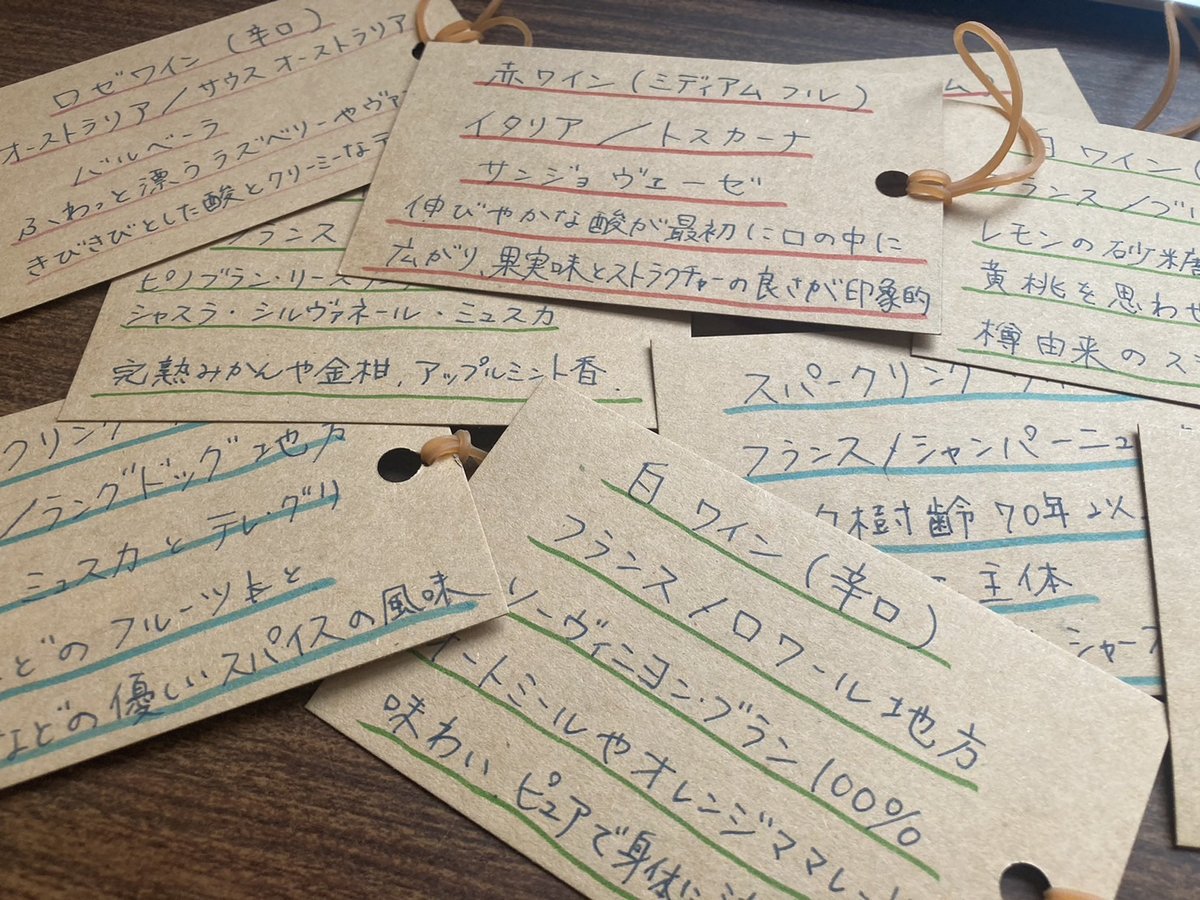 ロゼワイン(辛口)
オーストラリア/サウスオーストラリア
バルベーラ
ふわっと漂うラズベリーやヴァ
きびきびとした酸とクリーミーなテ
赤ワイン(ミディアムフル)
イタリア/トスカーナ
サンジョヴェーゼ
伸びやかな酸が最初に口の中に
広がり、果実味とストラクチャーの良さが印象的
ム)
白ワイン(
ランス/ブル
レモンの砂糖
黄桃を思わせ
樽由来のス
ランス
ピノブラン・リースリン
シャスラ・シルヴァネール・ミュスカ
完熟みかんや金柑、アップルミント香、
スパークリング
フランス/シャンパーニュ
樹齢70年以
主体
シャープ
クリング
/ラングドッグ地方
ミュスカとテレ・グリ
どのフルーツ香と
などの優しいスパイスの風味
白ワイン(辛口)
フランス/ロワール地方
ソーヴィニヨン・ブラン100%
オートミールやオレンジママレー
味わい、ピュアで身体に